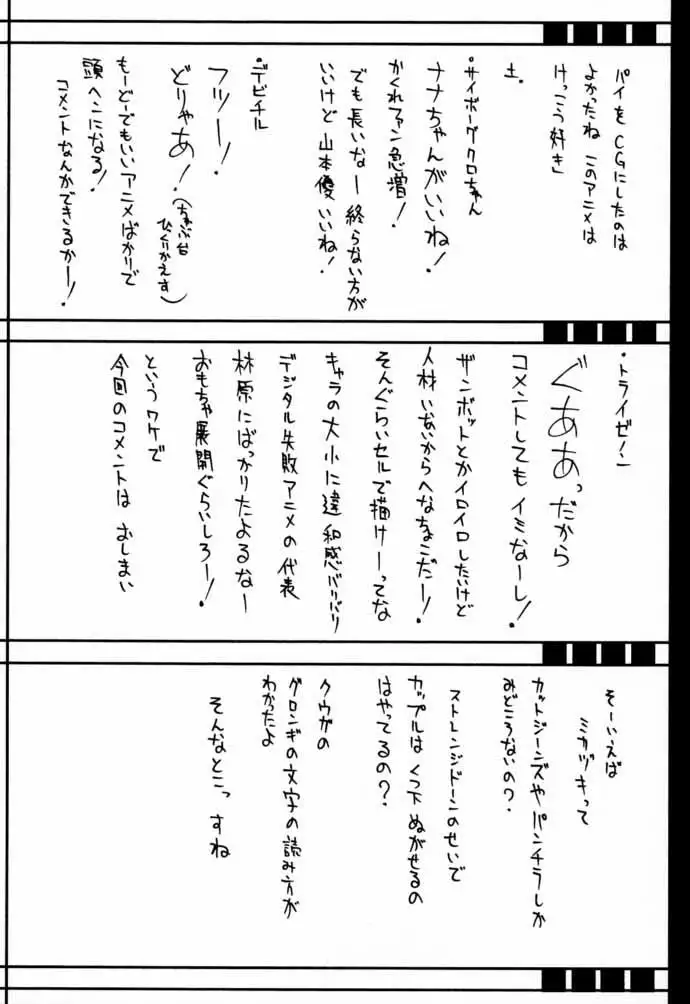 パイを CGにしたのは
よかったね このアニメは
けっこう好き」
土。
・サイボーグクロちゃん
ナナちゃんがいいね!
かくれファン急増!
でも長いなー 終らない方が
いいけど 山本優 いいね!
・デビチル
フツー!
どりゃあ!(ちゃぶ台
ひっくりかえす)
もーどーでもいいアニメばかりで
頭ヘンになる!
コメントなんかできるかー!
・トライゼノン
ぐああっだから
コメントしても イミなーし!
ザンボットとかイロイロしたいけど
人材いないからへなちょこだー!
そんぐらいセルで描けーってな
キャラの大小に違和感バリバリ
デジタル失敗アニメの代表
林原にばっかりたよるなー
おもちゃ展開ぐらいしろー!
というワケで
今回のコメントは おしまい
そーいえば
ミカヅキって
カットジーンズや パンチラしか
みどころないの?
ストレンジドーンのせいで
カップルは くつ下 ぬがせるの
はやってるの?
クウガの
グロンギの文字の読み方が
わかったよ
そんなとこっ すね